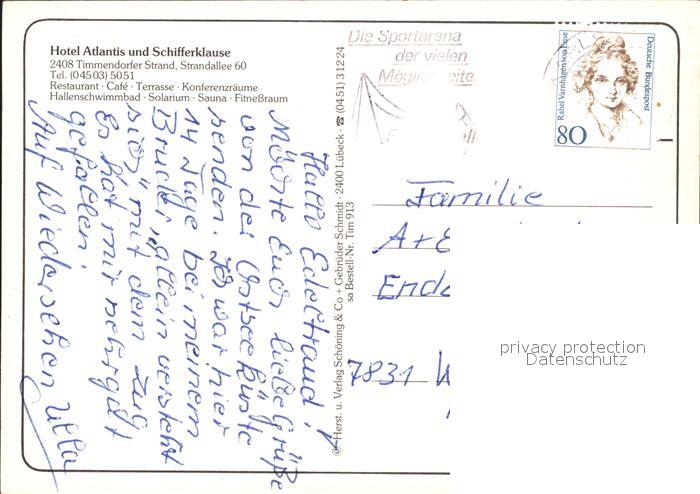 Hotel Atlantis und Schifferklause
2408 Timmendorfer Strand, Strandallee 60
Tel. (04503) 5051
Restaurant · Café · Terrasse · Konferenzräume
Hallenschwimmbad · Solarium · Sauna · Fitneßraum
Hallo Edeltraud!
Möchte Euch liebe Grüße
von der Ostseeküste
senden. Ich war hier
14 Tage bei meinem
Bruder, allein versteht
sich" mit dem Zug
Es hat mir sehr gut
gefallen!
Auf Wiedersehen Ulla
© Herst. u. Verlag Schöning & Co + Gebrüder Schmidt · 2400 Lübeck · ☎ (04 51) 3 12 24
sa Bestell-Nr. Tim 913
Die Sportarena
der vielen
Möglichkeite
Rahel Varnhagen von Ense
Deutsche Bundespost
80
Familie
A + E
Ende
7831 W
privacy protection
Datenschutz